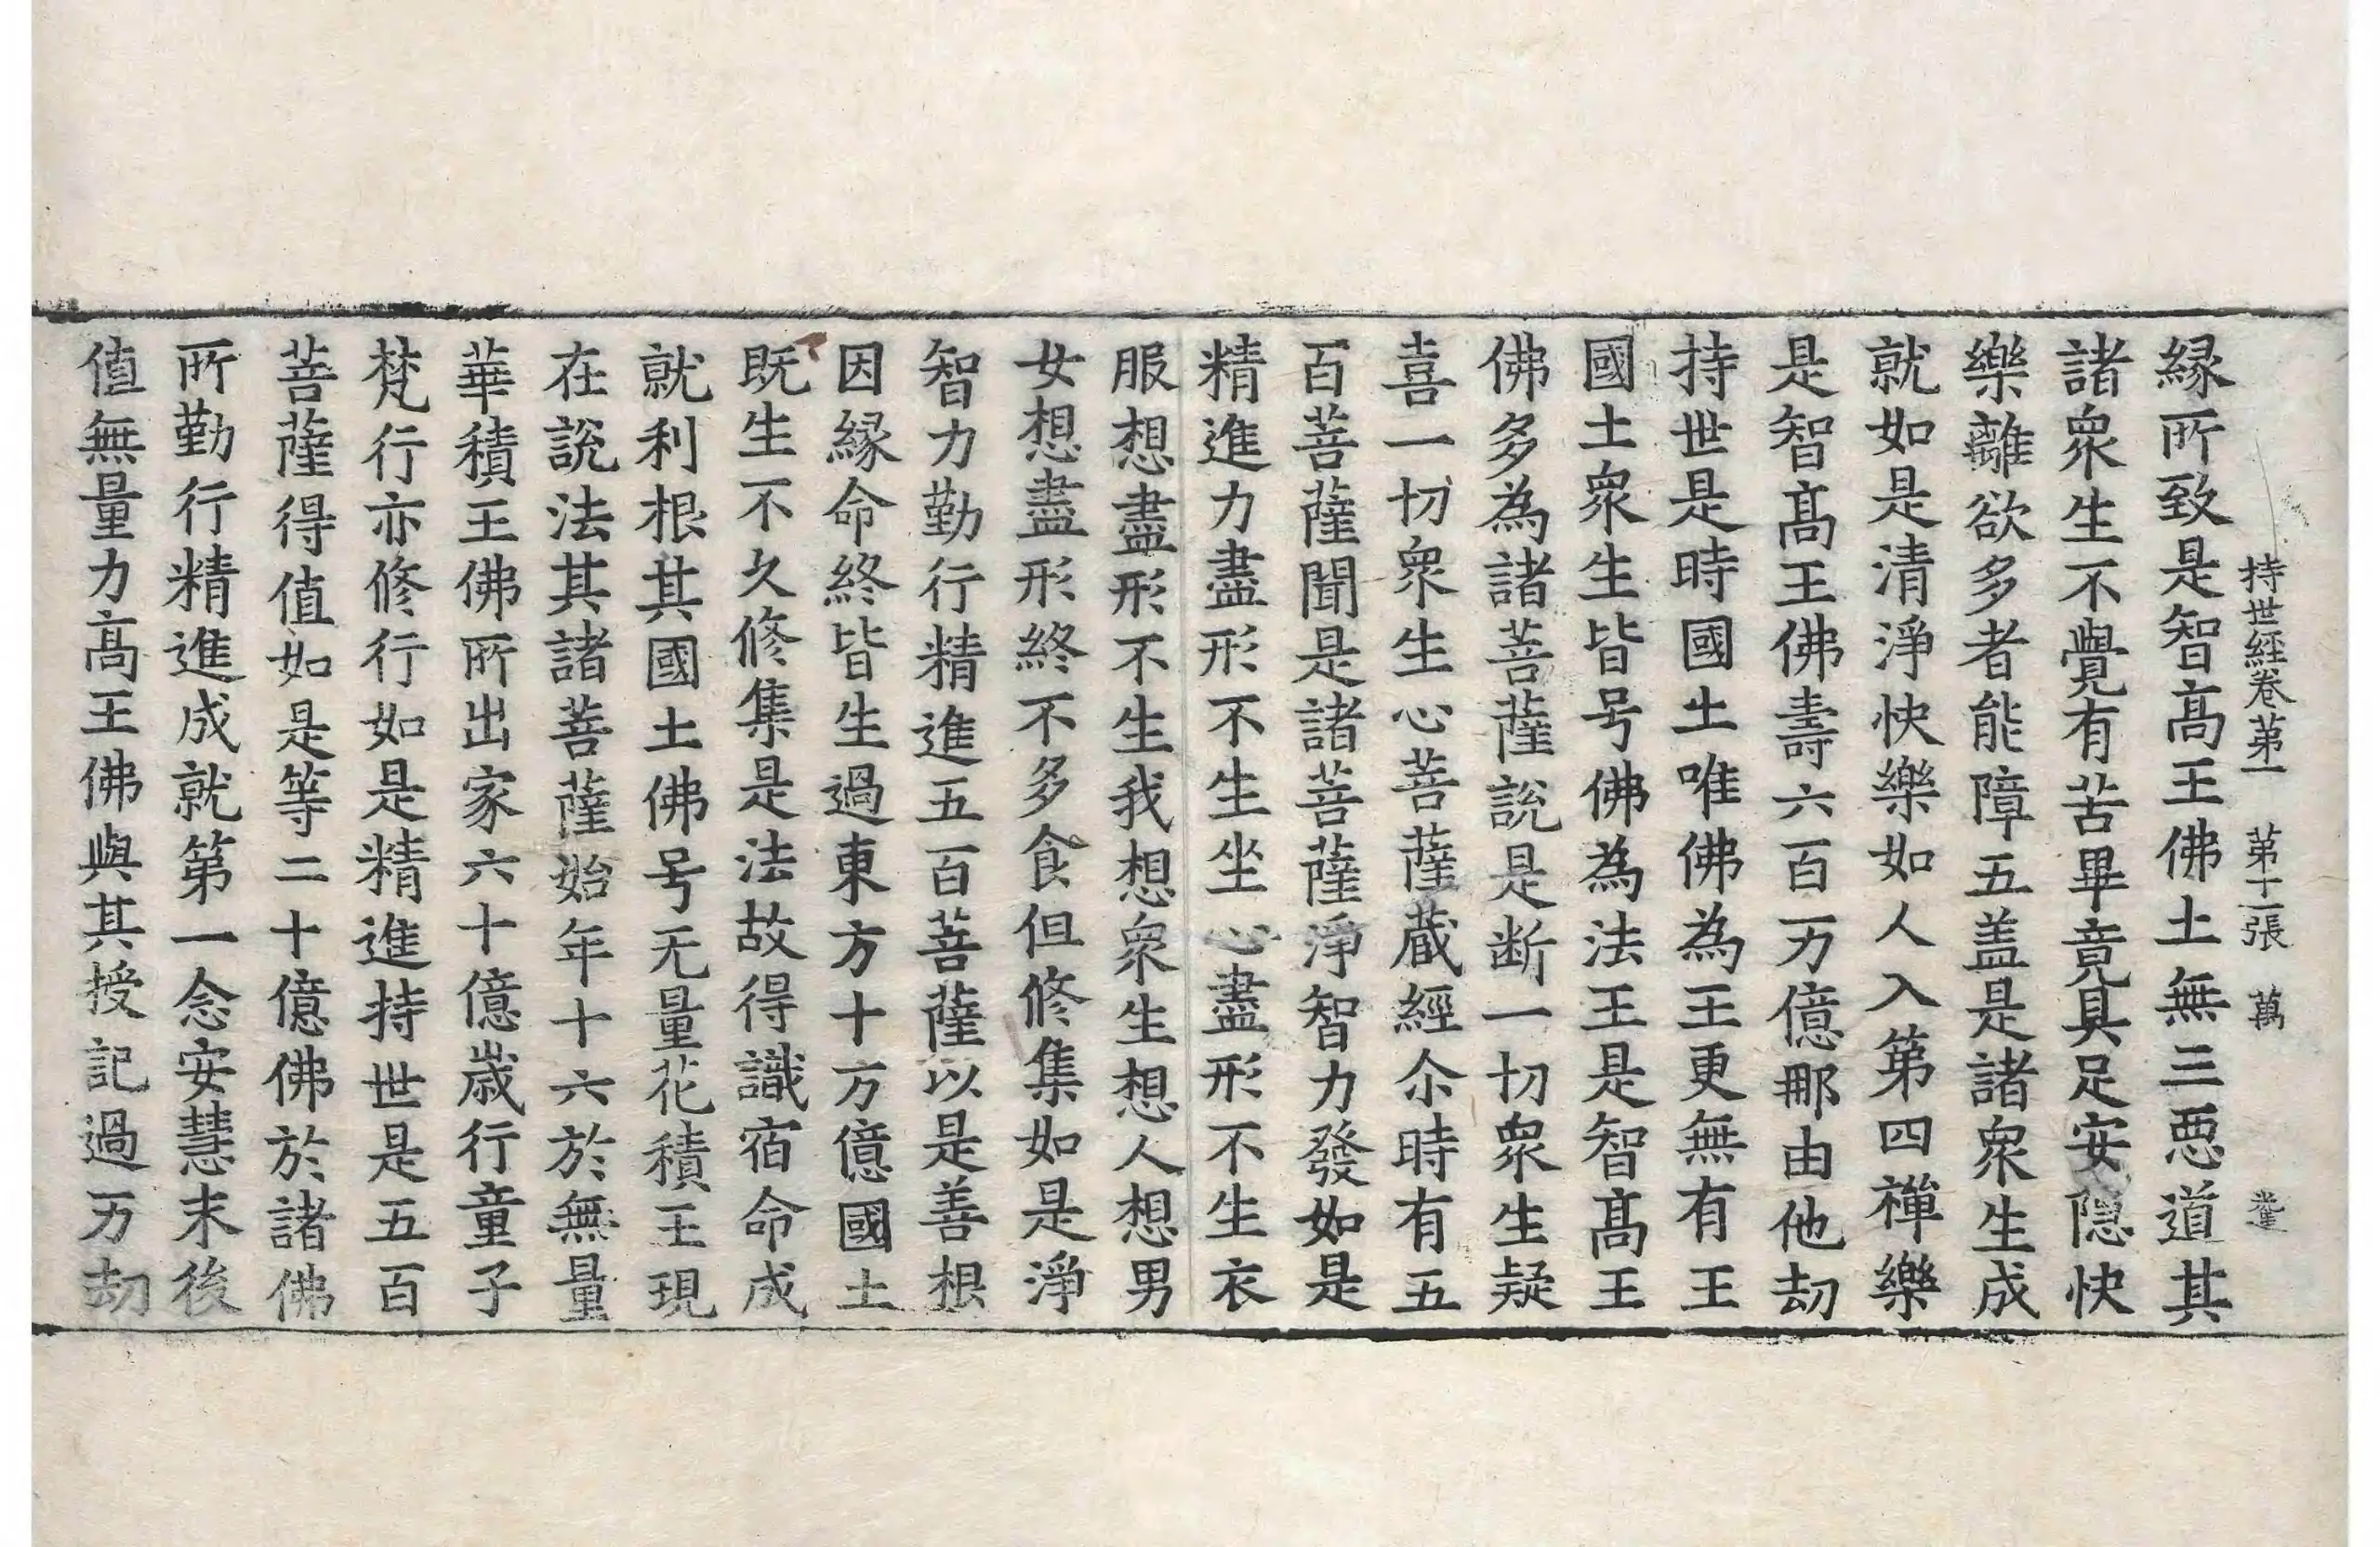 持世經卷第一 第十二張 萬
縁所致是智髙王佛土無三悪道其
諸衆生不覺有苦畢竟具足安隠快
樂離欲多者能障五盖是諸衆生成
就如是清淨快樂如人入第四禪樂
是智髙王佛壽六百万億那由他劫
持世是時國土唯佛為王更無有王
國土衆生皆号佛為法王是智髙王
佛多為諸菩薩說是断一切衆生疑
喜一切衆生心菩薩蔵經尒時有五
百菩薩聞是諸菩薩淨智力發如是
精進力盡形不生坐心盡形不生衣
服想盡形不生我想衆生想人想男
女想盡形終不多食但修集如是淨
智力勤行精進五百菩薩以是善根
因縁命終皆生過東方十万億國土
既生不久修集是法故得識宿命成
就利根其國土佛号无量花積王現
在說法其諸菩薩始年十六於無量
華積王佛所出家六十億歲行童子
梵行亦修行如是精進持世是五百
菩薩得值如是等二十億佛於諸佛
所勤行精進成就第一念安慧末後
值無量力髙王佛與其授記過万劫